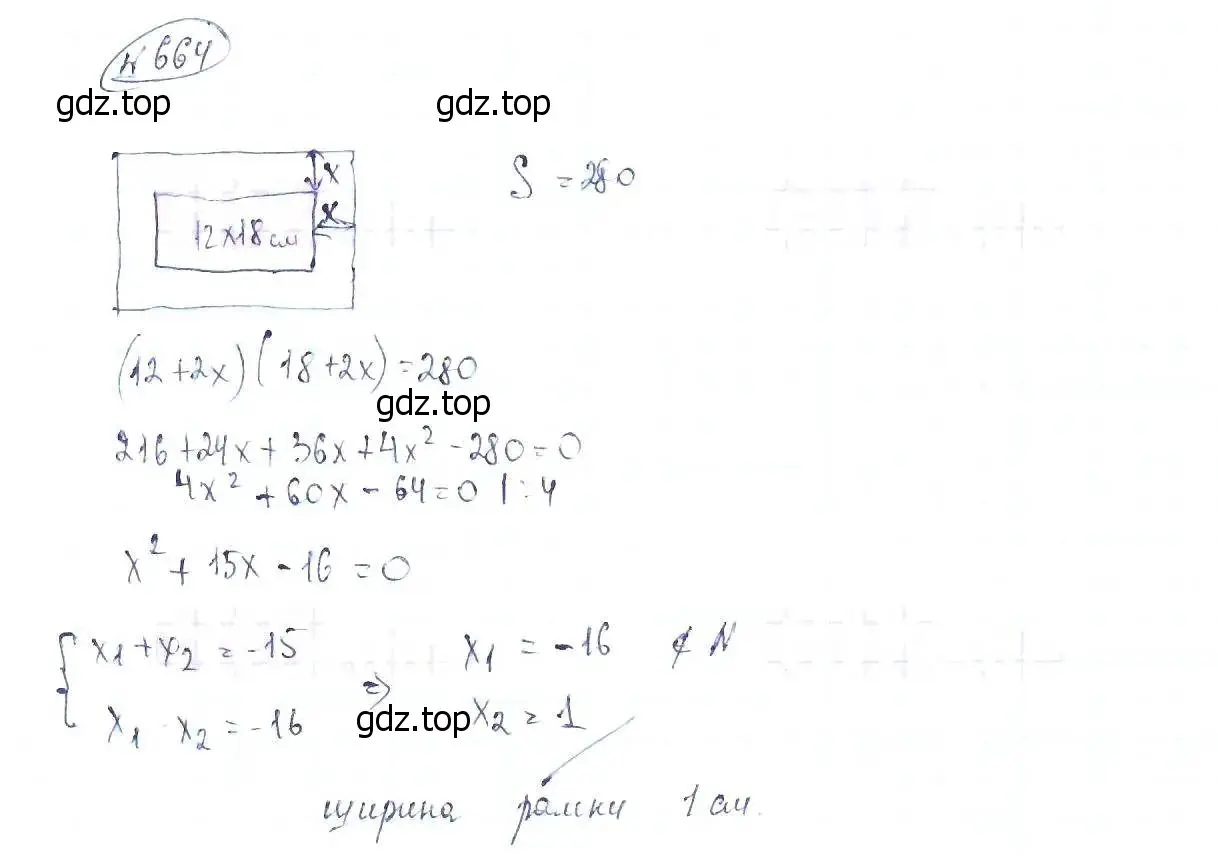 № 664
gdz.top gdz.top
x S = 280
x
12x18 см
(12+2x)(18+2x)=280
gdz.top
216+24x+36x+4x² -280=0
4x² +60x - 64=0 | : 4
x² + 15x - 16 = 0
{ x₁+x₂ = -15 x₁ = -16 ∉ N
=>
x₁ x₂ = -16 gdz.top x₂ = 1
ширина рамки 1 см.